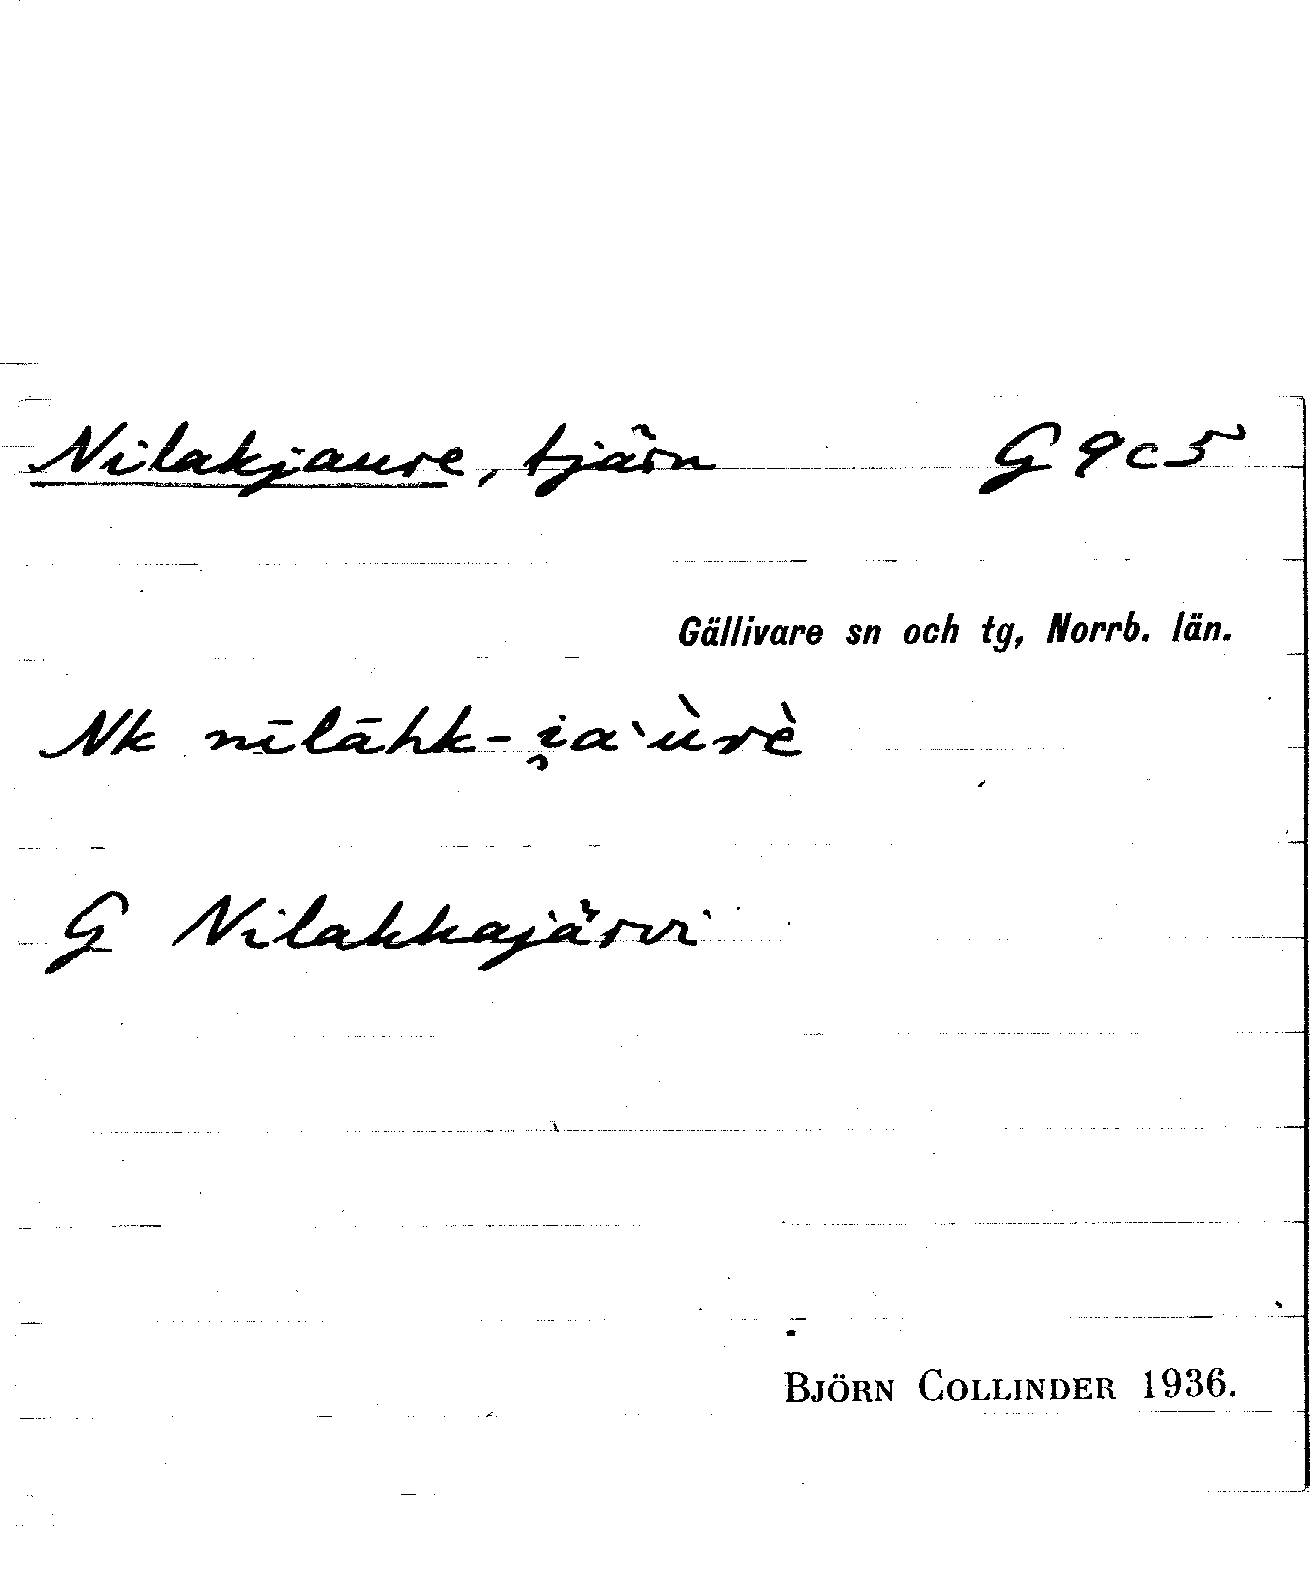 Nilakjaure, tjärn G 9c5
Gällivare sn och tg, Norrb. län.
Nk nīlāhk-i̯aˋùrè
G Nilakkajärvi
BJÖRN COLLINDER 1936.